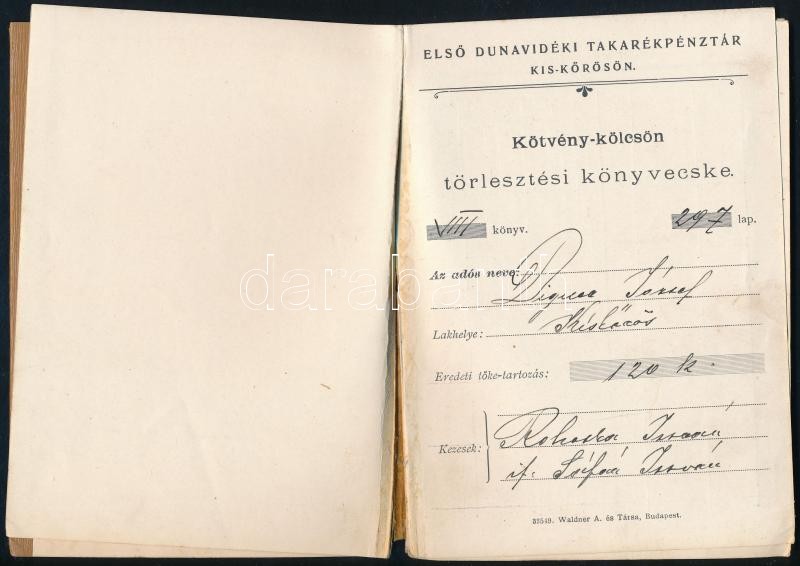 ELSŐ DUNAVIDÉKI TAKARÉKPÉNZTÁR
KIS-KŐRÖSÖN.
Kötvény-kölcsön
törlesztési könyvecske.
VIII könyv. 297 lap.
Az adós neve:
József
Lakhelye: Kiskőrös
Eredeti tőke-tartozás: 120 k.
Kezesek:
István
if. István
33549. Waldner A. és Társa, Budapest.
darabanth